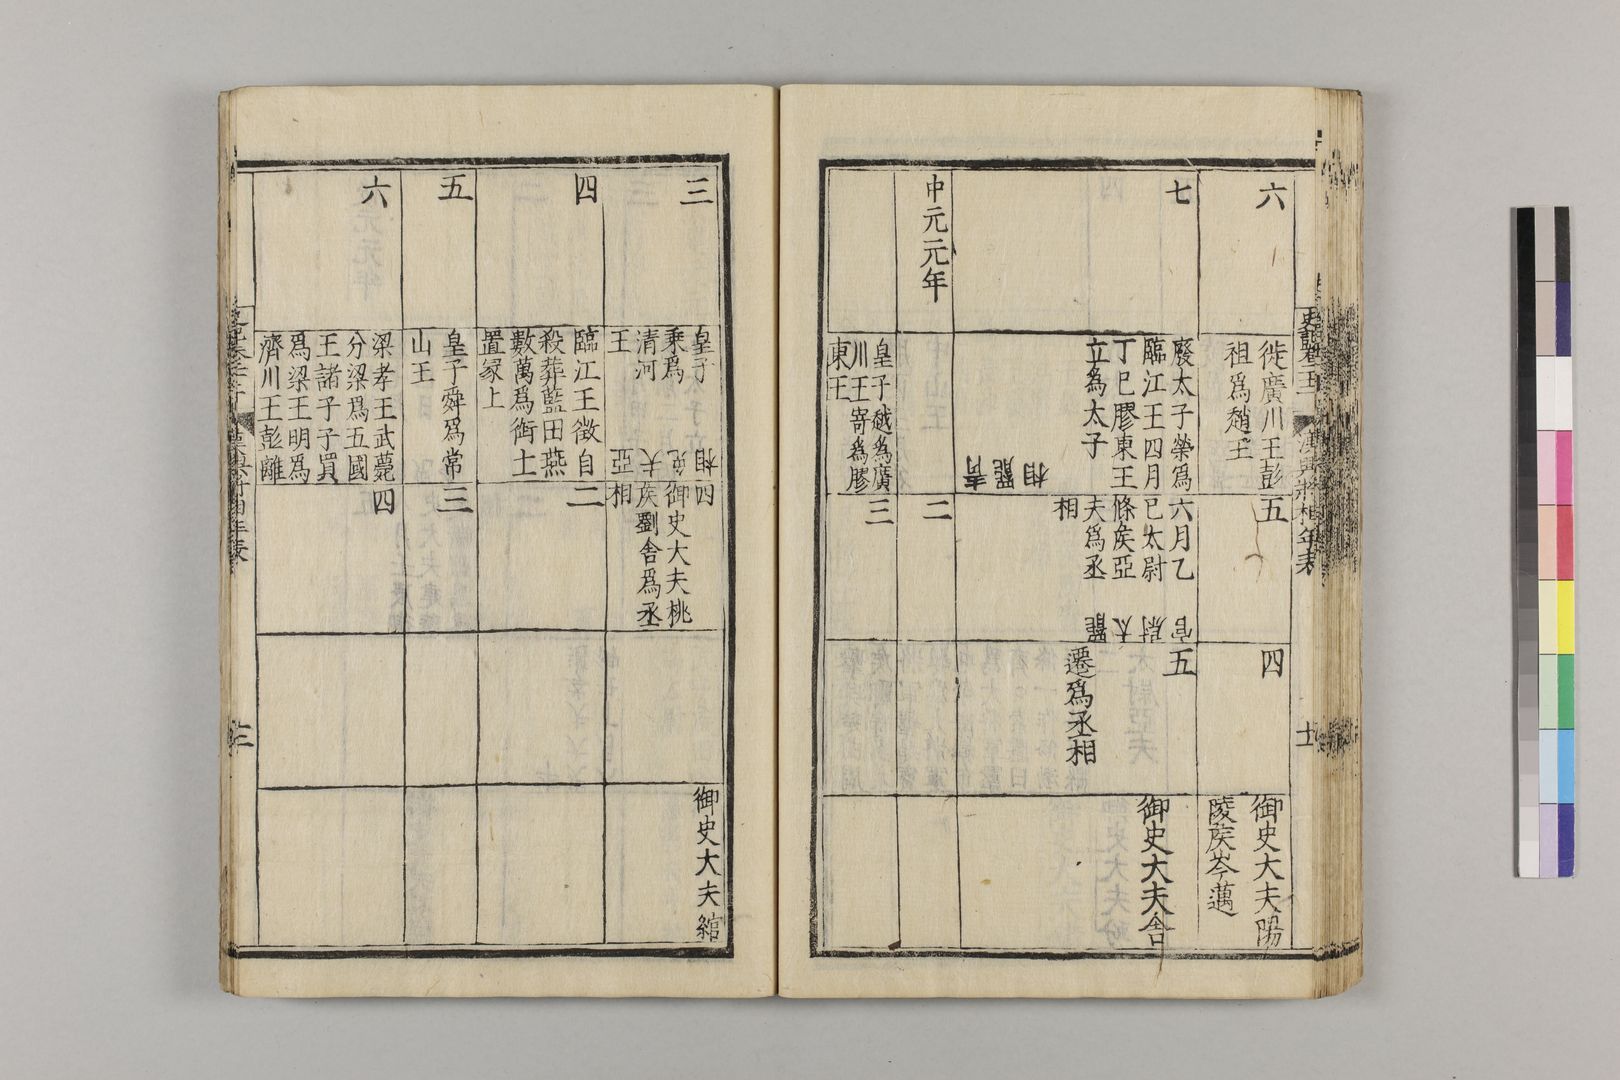 史記卷二十二
漢興將相年表
六
徙廣川王彭
祖爲趙王
五
四
御史大夫陽
陵侯岑邁
七
廢太子榮爲
臨江王四月
丁巳膠東王
立爲太子
青翟相
六月乙
巳太尉
條侯亞
夫爲丞
相
罷太尉官
五
遷爲丞相
御史大夫舍
中元元年
二
皇子越爲廣
川王寄爲膠
東王
三
三
皇子
乘爲
清河
王
亞夫免相
四
御史大夫桃
侯劉舍爲丞
相
御史大夫綰
四
臨江王徵自
殺葬藍田燕
數萬爲銜土
置冢上
二
五
皇子舜爲常
山王
三
六
梁孝王武薨
分梁爲五國
王諸子子買
爲梁王明爲
濟川王彭離
四
漢興將相年表